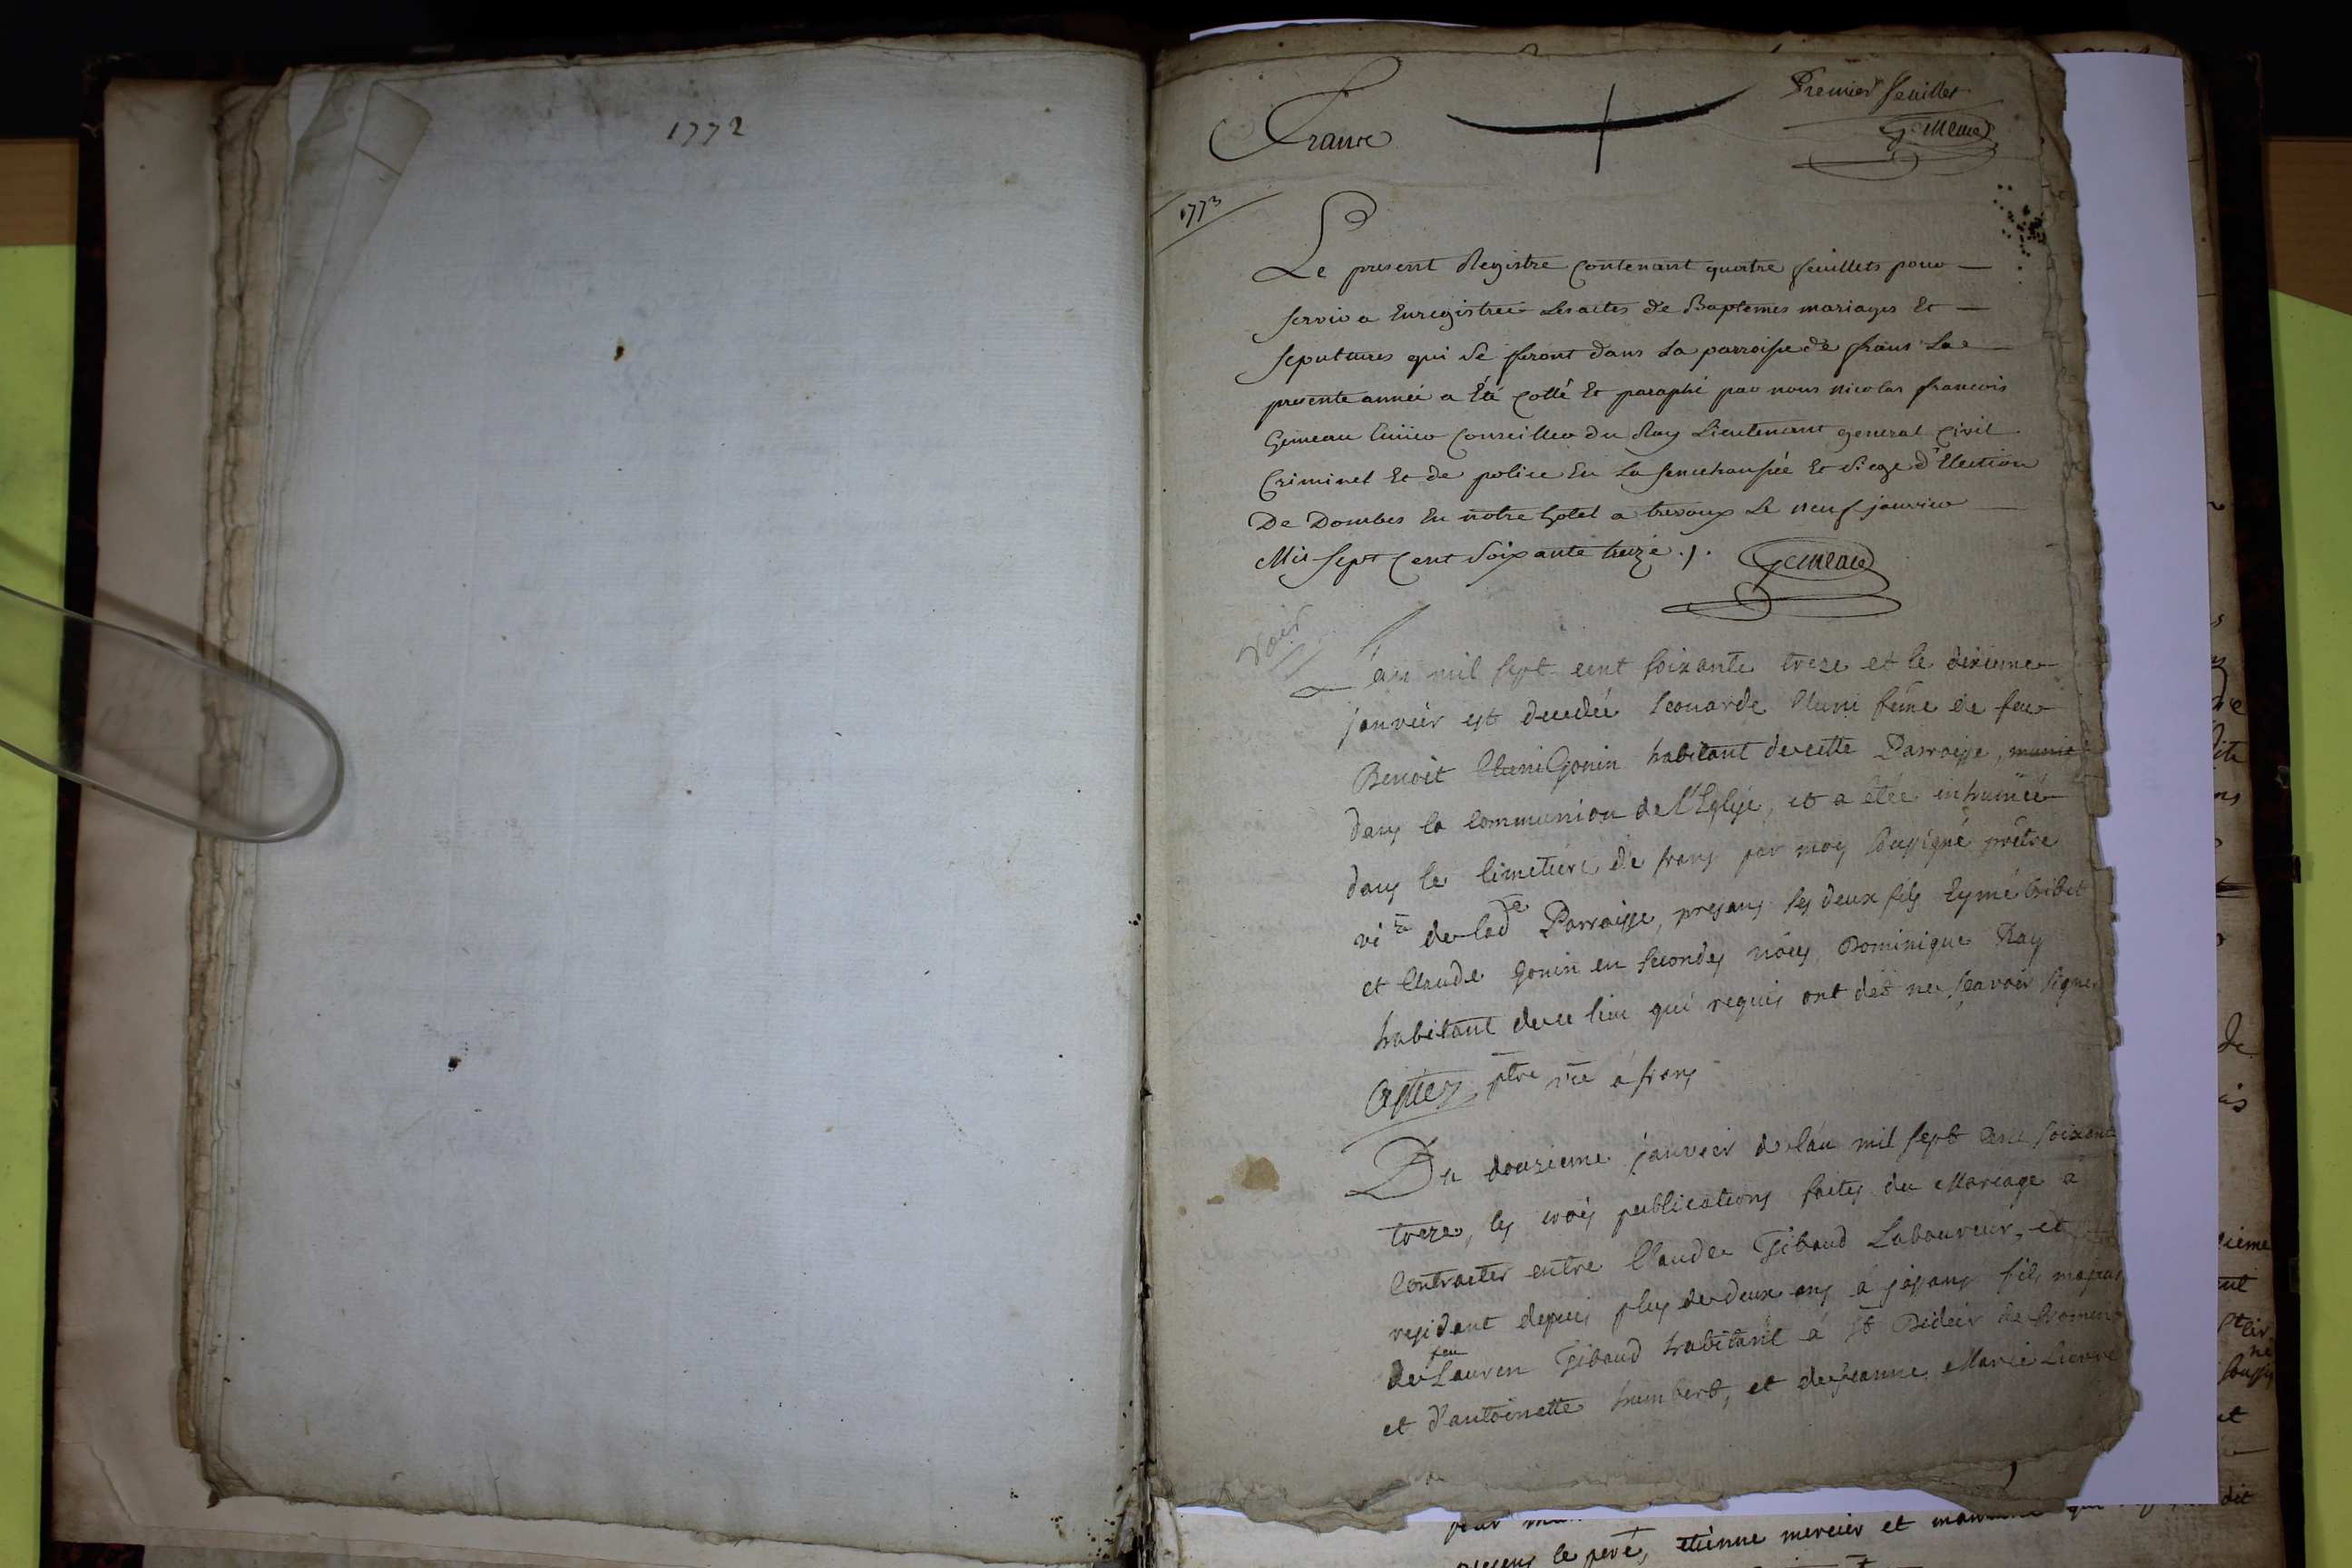 1772
Premier feuillet
Gemeau
Frans
1773
Le present Registre Contenant quatre feuillets pour
servir a Enregistrer Les actes de Baptemes mariages Et
sepultures qui se feront dans La parroisse de frans La
presente année a Eté Cotté Et paraphé par nous nicolas francois
Gemeau Conseiller du Roy Lieutenant general Civil
Criminel Et de police En La senechaussée Et siege d'Election
De Dombes En notre hotel a trevoux Le neuf janvier
Mil sept Cent soixante treize .
Gemeau
voir
L'an mil sept cent soixante treze et le dixieme
janvier est decedée Leonarde Cluni féme de feu
Benoit Cluni Gonin habitant de cette Parroisse, munie
dans la Communion de l'Eglise, et a étée inhumée
dans le Cimetiere de frans par moy soussigné prêtre
vire de lade Parroisse, presans ses deux fils Eymé
et Claude Gonin en secondes nôces, Dominique Ray
habitant de ce lieu qui requis ont dit ne sçavoir signer
ptre vre à frans
Du douzieme janvier de l'an mil sept cent soixant
treze, les trois publications faites du Mariage à
Contracter entre Claude Tibaud Laboureur, et
residant depuis plus de deux ans à jassans fils majeur
de feu Lauren Tibaud habitant à St Didier de
et d'antoinette humbert, et de jeanne Marie
le peré, etiènne mercier et